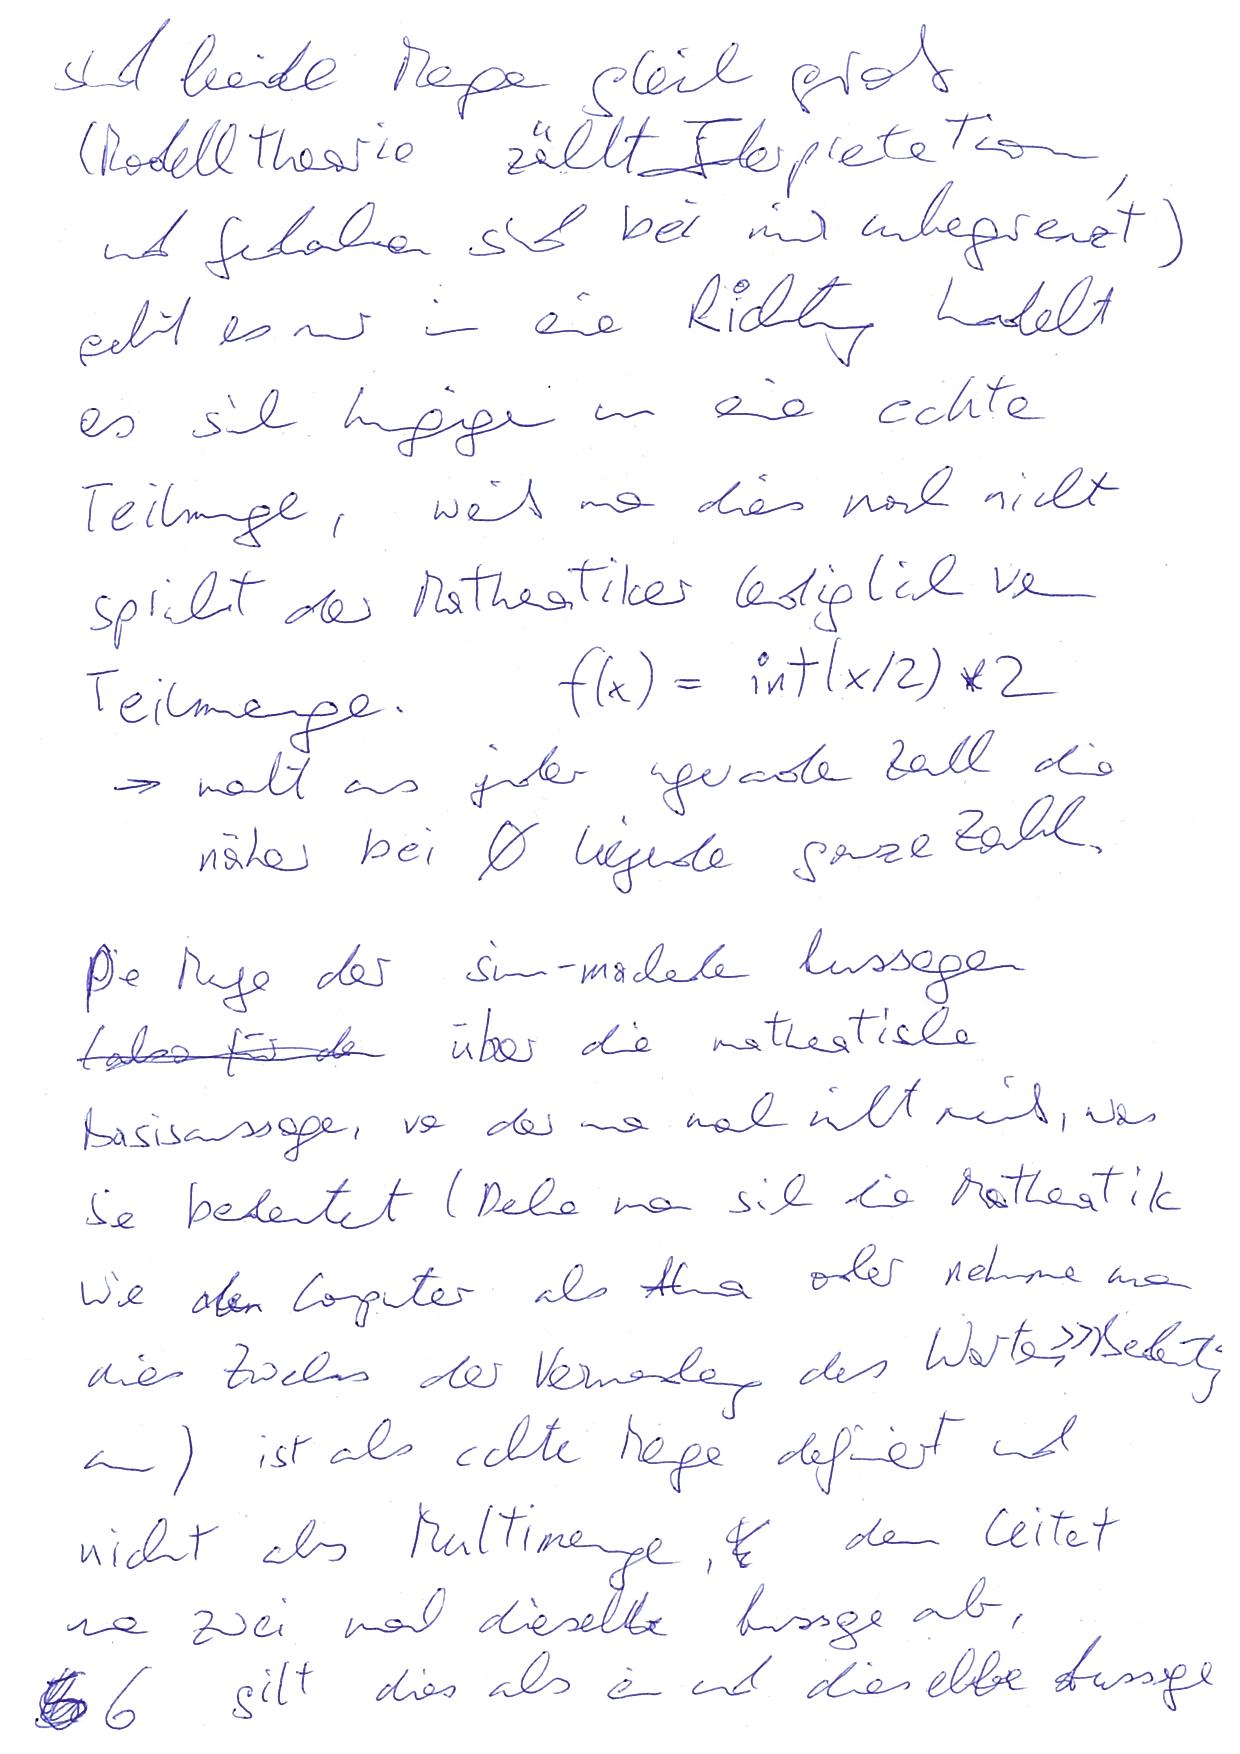 sind beide Mengen gleich groß
(Modelltheorie zählt Interpretation,
und Gedanken sind bei mir unbegrenzt)
geht es nur in eine Richtung handelt
es sich hingegen um eine echte
Teilmenge, weiß man dies noch nicht
spricht der Mathematiker lediglich von
Teilmenge. f(x) = int(x/2) * 2
→ macht aus jeder ungerade Zahl die
näher bei Ø liegende ganze Zahl.
Die Menge der sinn- Aussagen
(also für den über die mathematische
Basisaussage, von der man noch nicht weiß, was
sie bedeutet (Denke man sich die Mathematik
wie den Computer als oder nehme man
dies Zwecks der Vermeidung des Wortes »Bedeutung
an) ist als echte Menge definiert und
nicht als Multimenge, denn leitet
man zwei mal dieselbe Aussage ab,
6 gilt dies als ein und dieselbe Aussage